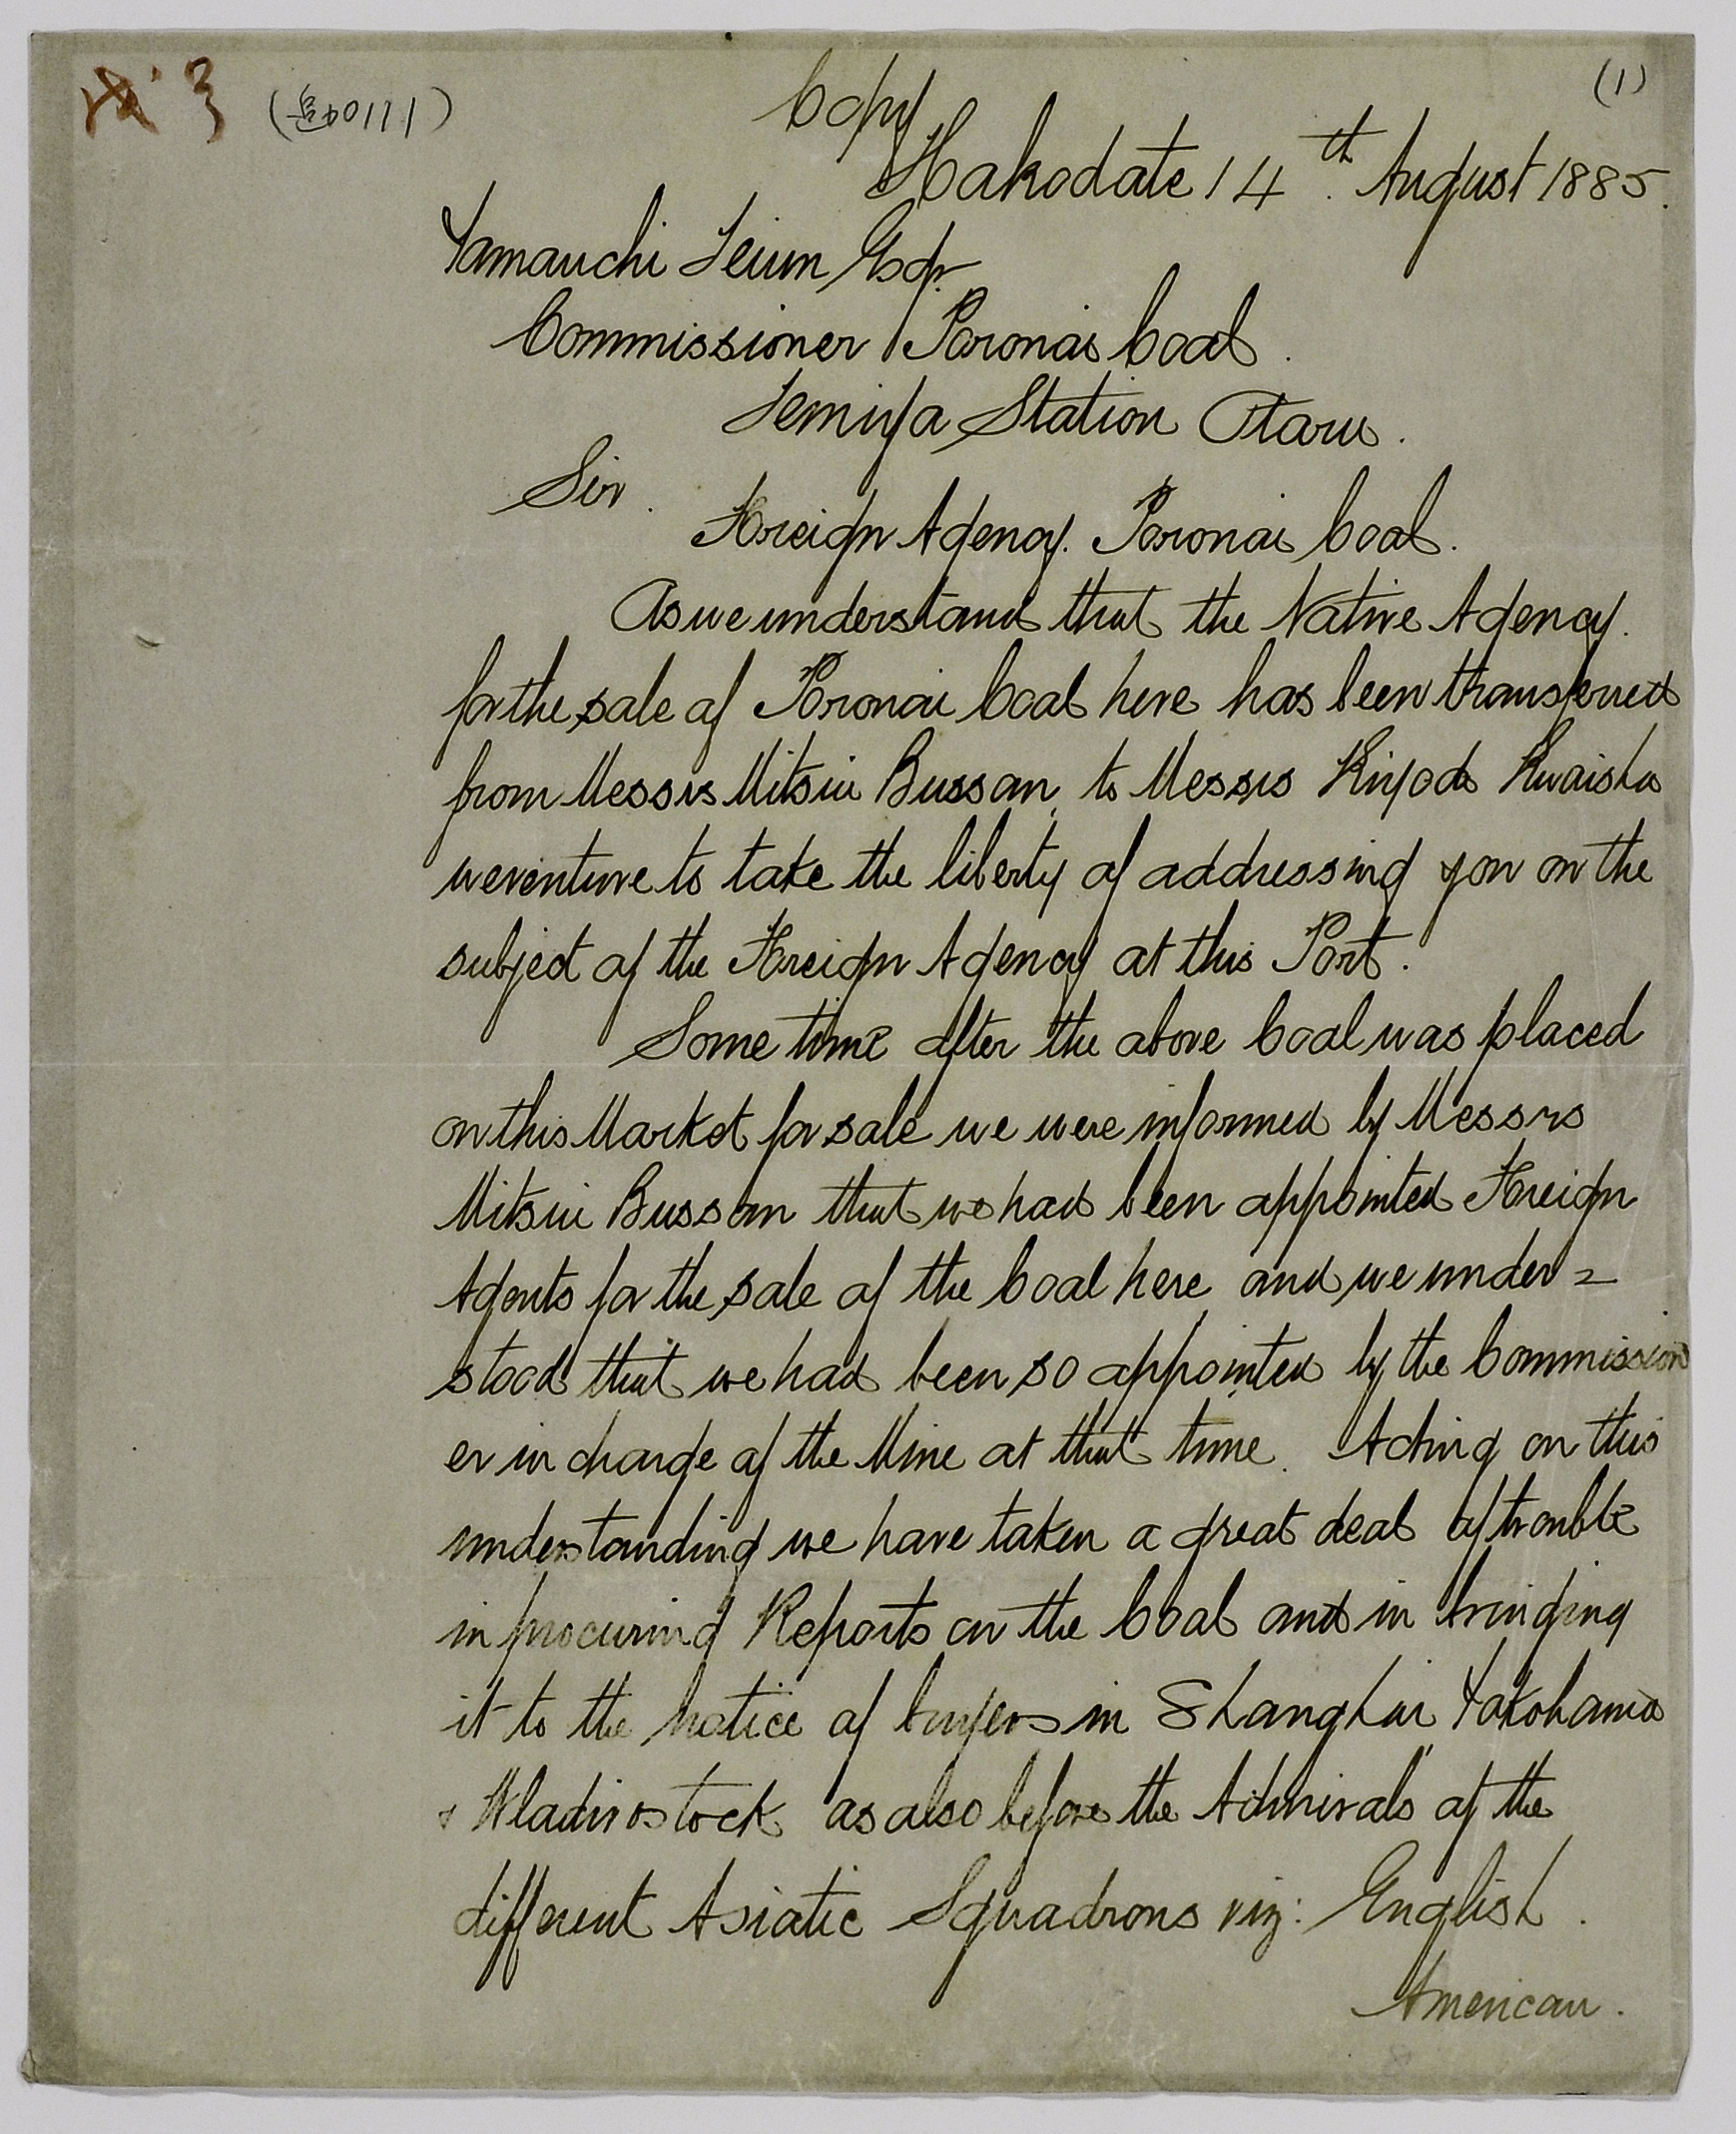 (1)
Copy
Hakodate 14th. August 1885.
Yamauchi Teiun Esqr.
Commissioner Poronai Coal.
Temiya Station Otaru.
Sir.
Foreign Agency. Poronai Coal.
As we understand that the Native Agency.
for the sale of Poronai Coal here has been transferred
from Messrs Mitsui Bussan, to Messrs Kiyodo Kwaisha
we venture to take the liberty of addressing you on the
subject of the Foreign Agency at this Port.
Some time after the above Coal was placed
on this Market for sale we were informed by Messrs
Mitsui Bussan that we had been appointed Foreign
Agents for the sale of the Coal here and we under=
stood that we had been so appointed by the Commission
er in charge of the Mine at that time. Acting on this
understanding we have taken a great deal of trouble
in procuring Reports on the Coal and in bringing
it to the notice of buyers in Shanghai, Yokohama
& Wladivostock as also before the Admirals of the
different Asiatic Squadrons viz: English.
American.